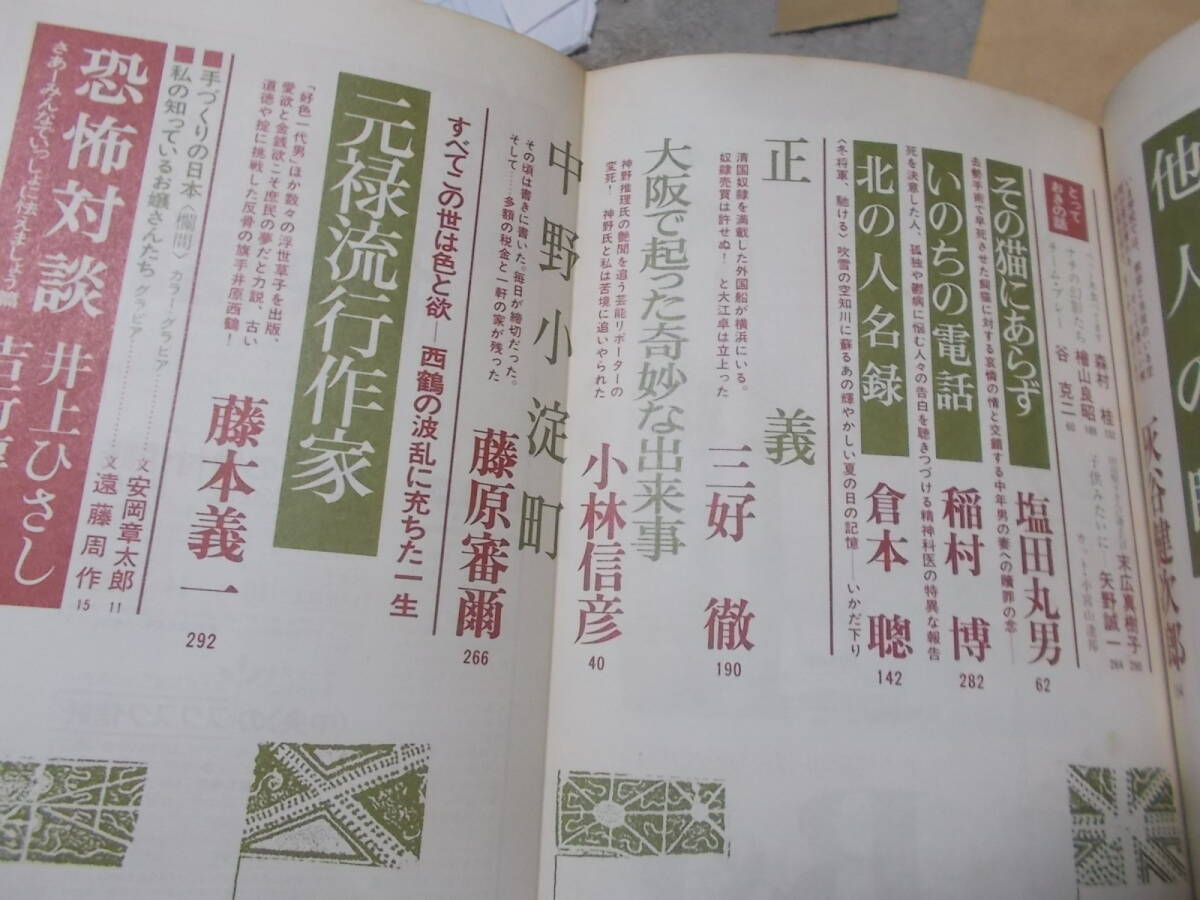 他人の
灰谷健次郎
とって
おきの話
森村 桂
檜山良昭
チーム・プレー
谷 克二 60
末広真樹子
子供みたいに
矢野誠一
その猫にあらず
去勢手術で早死させた飼猫に対する哀憐の情と交錯する中年男の妻への贖罪の念——
塩田丸男
62
いのちの電話
死を決意した人、孤独や鬱病に悩む人々の告白を聴きつづける精神科医の特異な報告
稲村 博
282
北の人名録
〈冬将軍、馳ける〉吹雪の空知川に蘇るあの輝やかしい夏の日の記憶——いかだ下り
倉本 聰
142
正義
清国奴隷を満載した外国船が横浜にいる。
奴隷売買は許せぬ! と大江卓は立上った
三好 徹
190
大阪で起った奇妙な出来事
神野推理氏の艶聞を追う芸能リポーターの
変死! 神野氏と私は苦境に追いやられた
小林信彦
40
中野小淀町
その頃は書きに書いた。毎日が締切だった。
そして……多額の税金と一軒の家が残った
藤原審爾
266
すべてこの世は色と欲——西鶴の波乱に充ちた一生
元禄流行作家
「好色一代男」ほか数々の浮世草子を出版、
愛欲と金銭欲こそ庶民の夢だと力説、古い
道徳や掟に挑戦した反骨の旗手井原西鶴!
藤本義一
292
■手づくりの日本〈欄間〉カラー・グラビア……文 安岡章太郎 11
■私の知っているお嬢さんたち グラビア……文 遠藤周作 15
恐怖対談
さあーみんなでいっしょに怯えましょう篇
井上ひさし